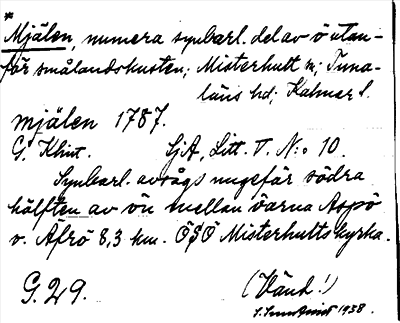 *
Mjälen, numera synbarl. del av ö utan-
för smålandskusten; Misterhult sn; Tuna-
läns hd; Kalmar l.
mjälen 1787.
G. Klint. SjA, Litt. T. N:o 10.
Synbarl. avsågs ungefär södra
hälften av ön mellan öarna Aspö
o. Äfrö 8,3 km. ÖSÖ Misterhults kyrka.
G. 29. (Vänd!)
1938.